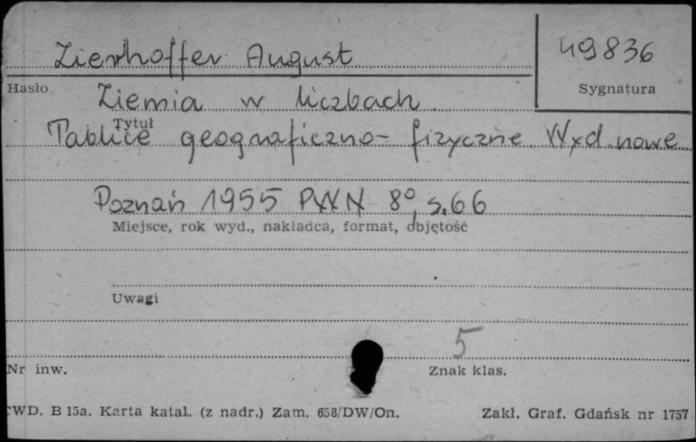 Zierhoffer August
49836
Hasło
Sygnatura
Ziemia w liczbach.
Tytuł
Tablice geograficzno- fizyczne Wyd. nowe
Poznań 1955 PWN 8°, s.66
Miejsce, rok wyd., nakładca, format, objętość
Uwagi
5
Nr inw.
Znak klas.
WD. B 15a. Karta katal. (z nadr.) Zam. 658/DW/On.
Zakł. Graf. Gdańsk nr 1757